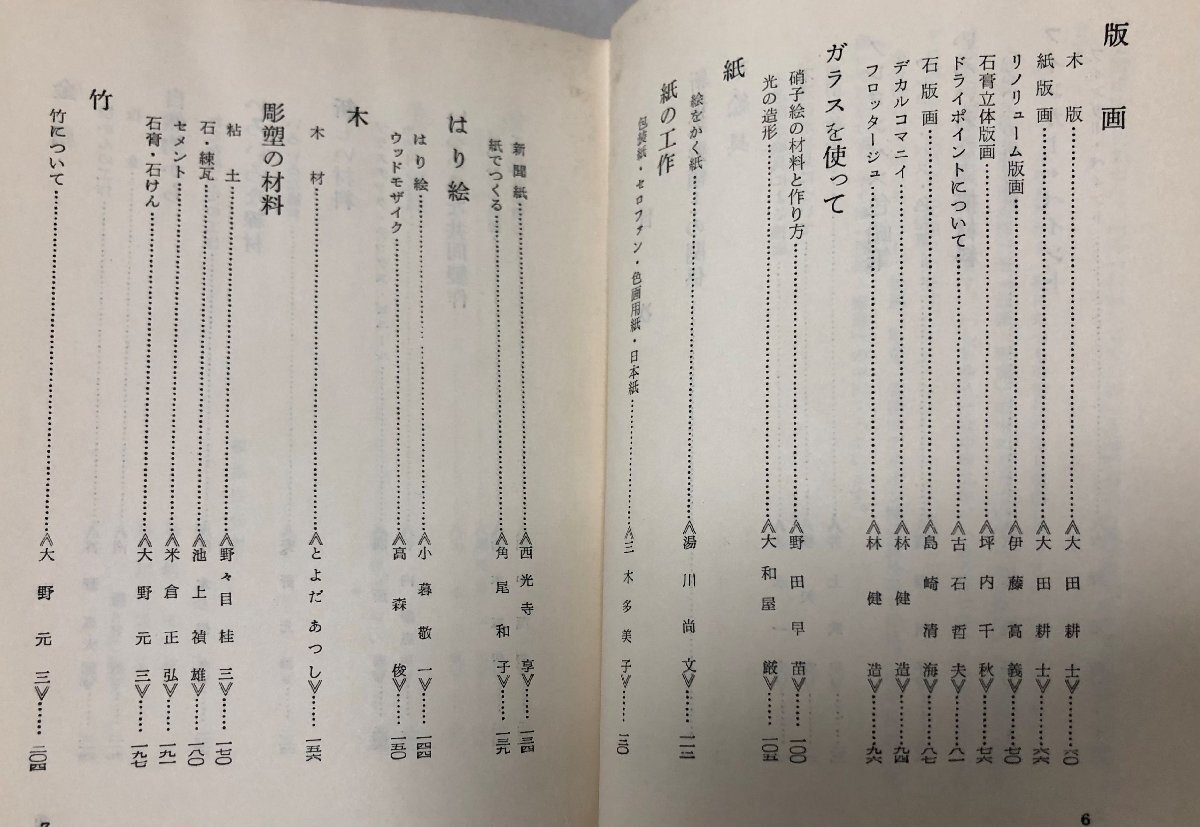 版画
木版……《大田耕士》……六〇
紙版画……《大田耕士》……六六
リノリューム版画……《伊藤高義》……七〇
石膏立体版画……《坪内千秋》……七六
ドライポイントについて……《古石哲夫》……八一
石版画……《島崎清海》……八七
デカルコマニイ……《林健造》……九四
フロッタージュ……《林健造》……九六
ガラスを使って
硝子絵の材料と作り方……《野田早苗》……一〇〇
光の造形……《大和屋巌》……一〇五
紙
絵をかく紙……《湯川尚文》……一一二
紙の工作
包装紙・セロファン・色画用紙・日本紙……《三木多美子》……一三〇
6
新聞紙……《西光寺享》……一三四
紙でつくる……《角尾和子》……一三九
はり絵
はり絵……《小暮敬一》……一四四
ウッドモザイク……《高森俊》……一五〇
木
木材……《とよだあつし》……一五六
彫塑の材料
粘土……《野々目桂三》……一七〇
石・練瓦……《池上禎雄》……一八〇
セメント……《米倉正弘》……一九一
石膏・石けん……《大野元三》……一九七
竹
竹について……《大野元三》……二〇四
7